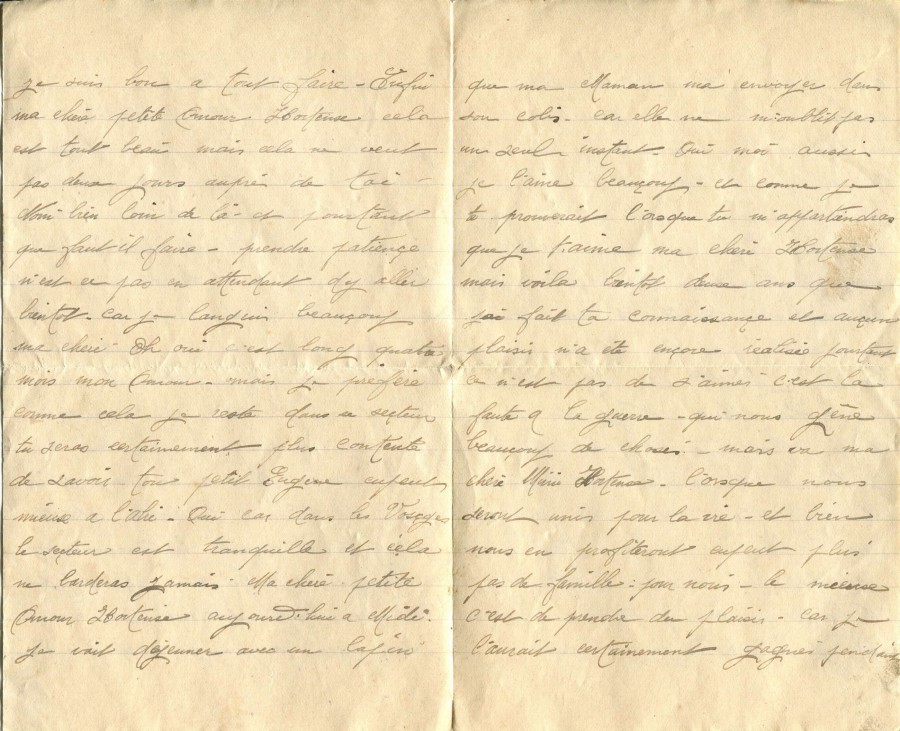 je suis bon a tout faire - Enfin
ma chère petite Amour Hortense cela
est tout beau mais cela ne veut
pas deux jours auprès de toi -
bien loin de là - et pourtant
que faut il faire - prendre patience
n'est ce pas en attendant d'y aller
bientot - car je languis beaucoup
ma cheri Oh oui c'est long quatre
mois mon Amour - mais je préfère
comme cela je reste dans ce secteur
tu seras certainement plus contente
de savoir ton petit Eugène
mieux a l'abri - Oui car dans les Vosges
le secteur est tranquille et cela
ne barderas jamais - Ma cheri petite
Amour Hortense aujourd'hui a Midi
je vait déjeuner avec un lapin
que ma Maman ma envoyer dans
son colis - car elle ne m'oublit pas
un seul instant - Oui moi aussi
je l'aime beaucoup - et comme je
te prouverait l'orsque tu m'appartendras
que je t'aime ma cheri Hortense
mais voila bientot deux ans que
j'ai fait ta connaissance et aucun
plaisir n'a été encore réalisé pourtant
ce n'est pas de s'aimés c'est la
faute a la guerre - qui nous gêne
beaucoup de choses - mais va ma
cheri Mimi Hortense - l'orsque nous
seront unis pour la vie - et bien
nous en profiteront plus
pas de famille : pour nous - le mieux
c'est de prendre du plaisir - car je
l'aurait certainement gagnés pendant